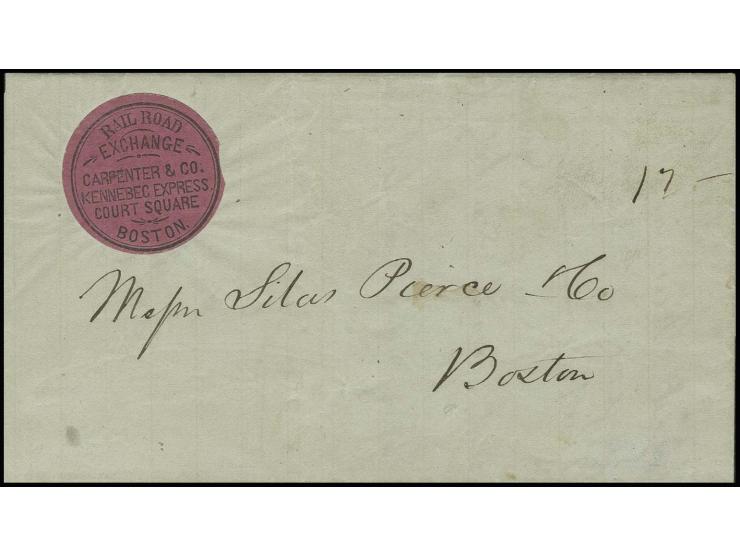 RAIL ROAD
EXCHANGE
CARPENTER & CO.
KENNEBEC EXPRESS.
COURT SQUARE
BOSTON.
17 –
Messrs Silas Pierce & Co
Boston